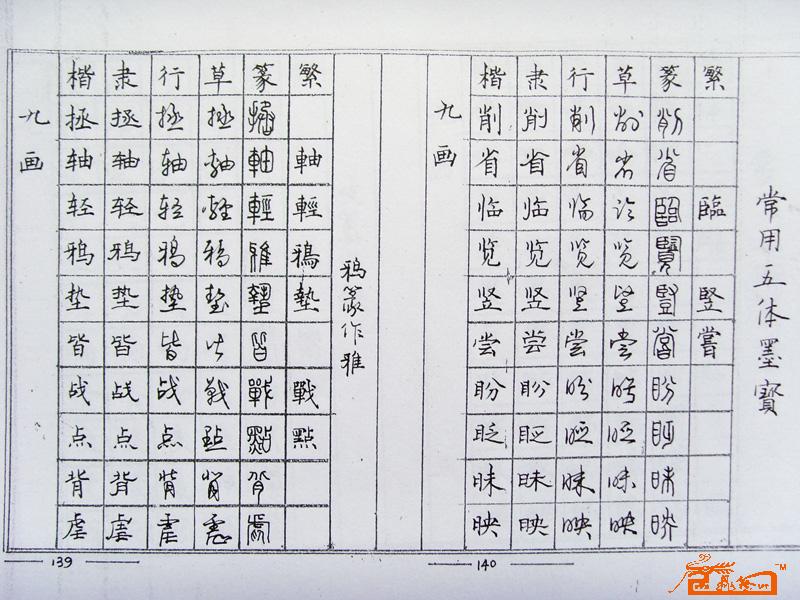 常用五体墨寶
九画
楷 隶 行 草 篆 繁
削 削 削 削 削
省 省 省 省 省
临 临 临 临 臨 臨
览 览 览 览 覽
竖 竖 竖 竖 豎 竪
尝 尝 尝 尝 嘗 嘗
盼 盼 盼 盼 盼
眨 眨 眨 眨
昧 昧 昧 昧 昧
映 映 映 映 映
140
鸦篆作雅
九画
楷 隶 行 草 篆 繁
拯 拯 拯 拯
轴 轴 轴 轴 軸 軸
轻 轻 轻 轻 輕 輕
鸦 鸦 鸦 鸦 雅 鴉
垫 垫 垫 垫 墊 墊
皆 皆 皆 皆 皆
战 战 战 战 戰 戰
点 点 点 点 點 點
背 背 背 背 背
虐 虐 虐 虐 虐
139